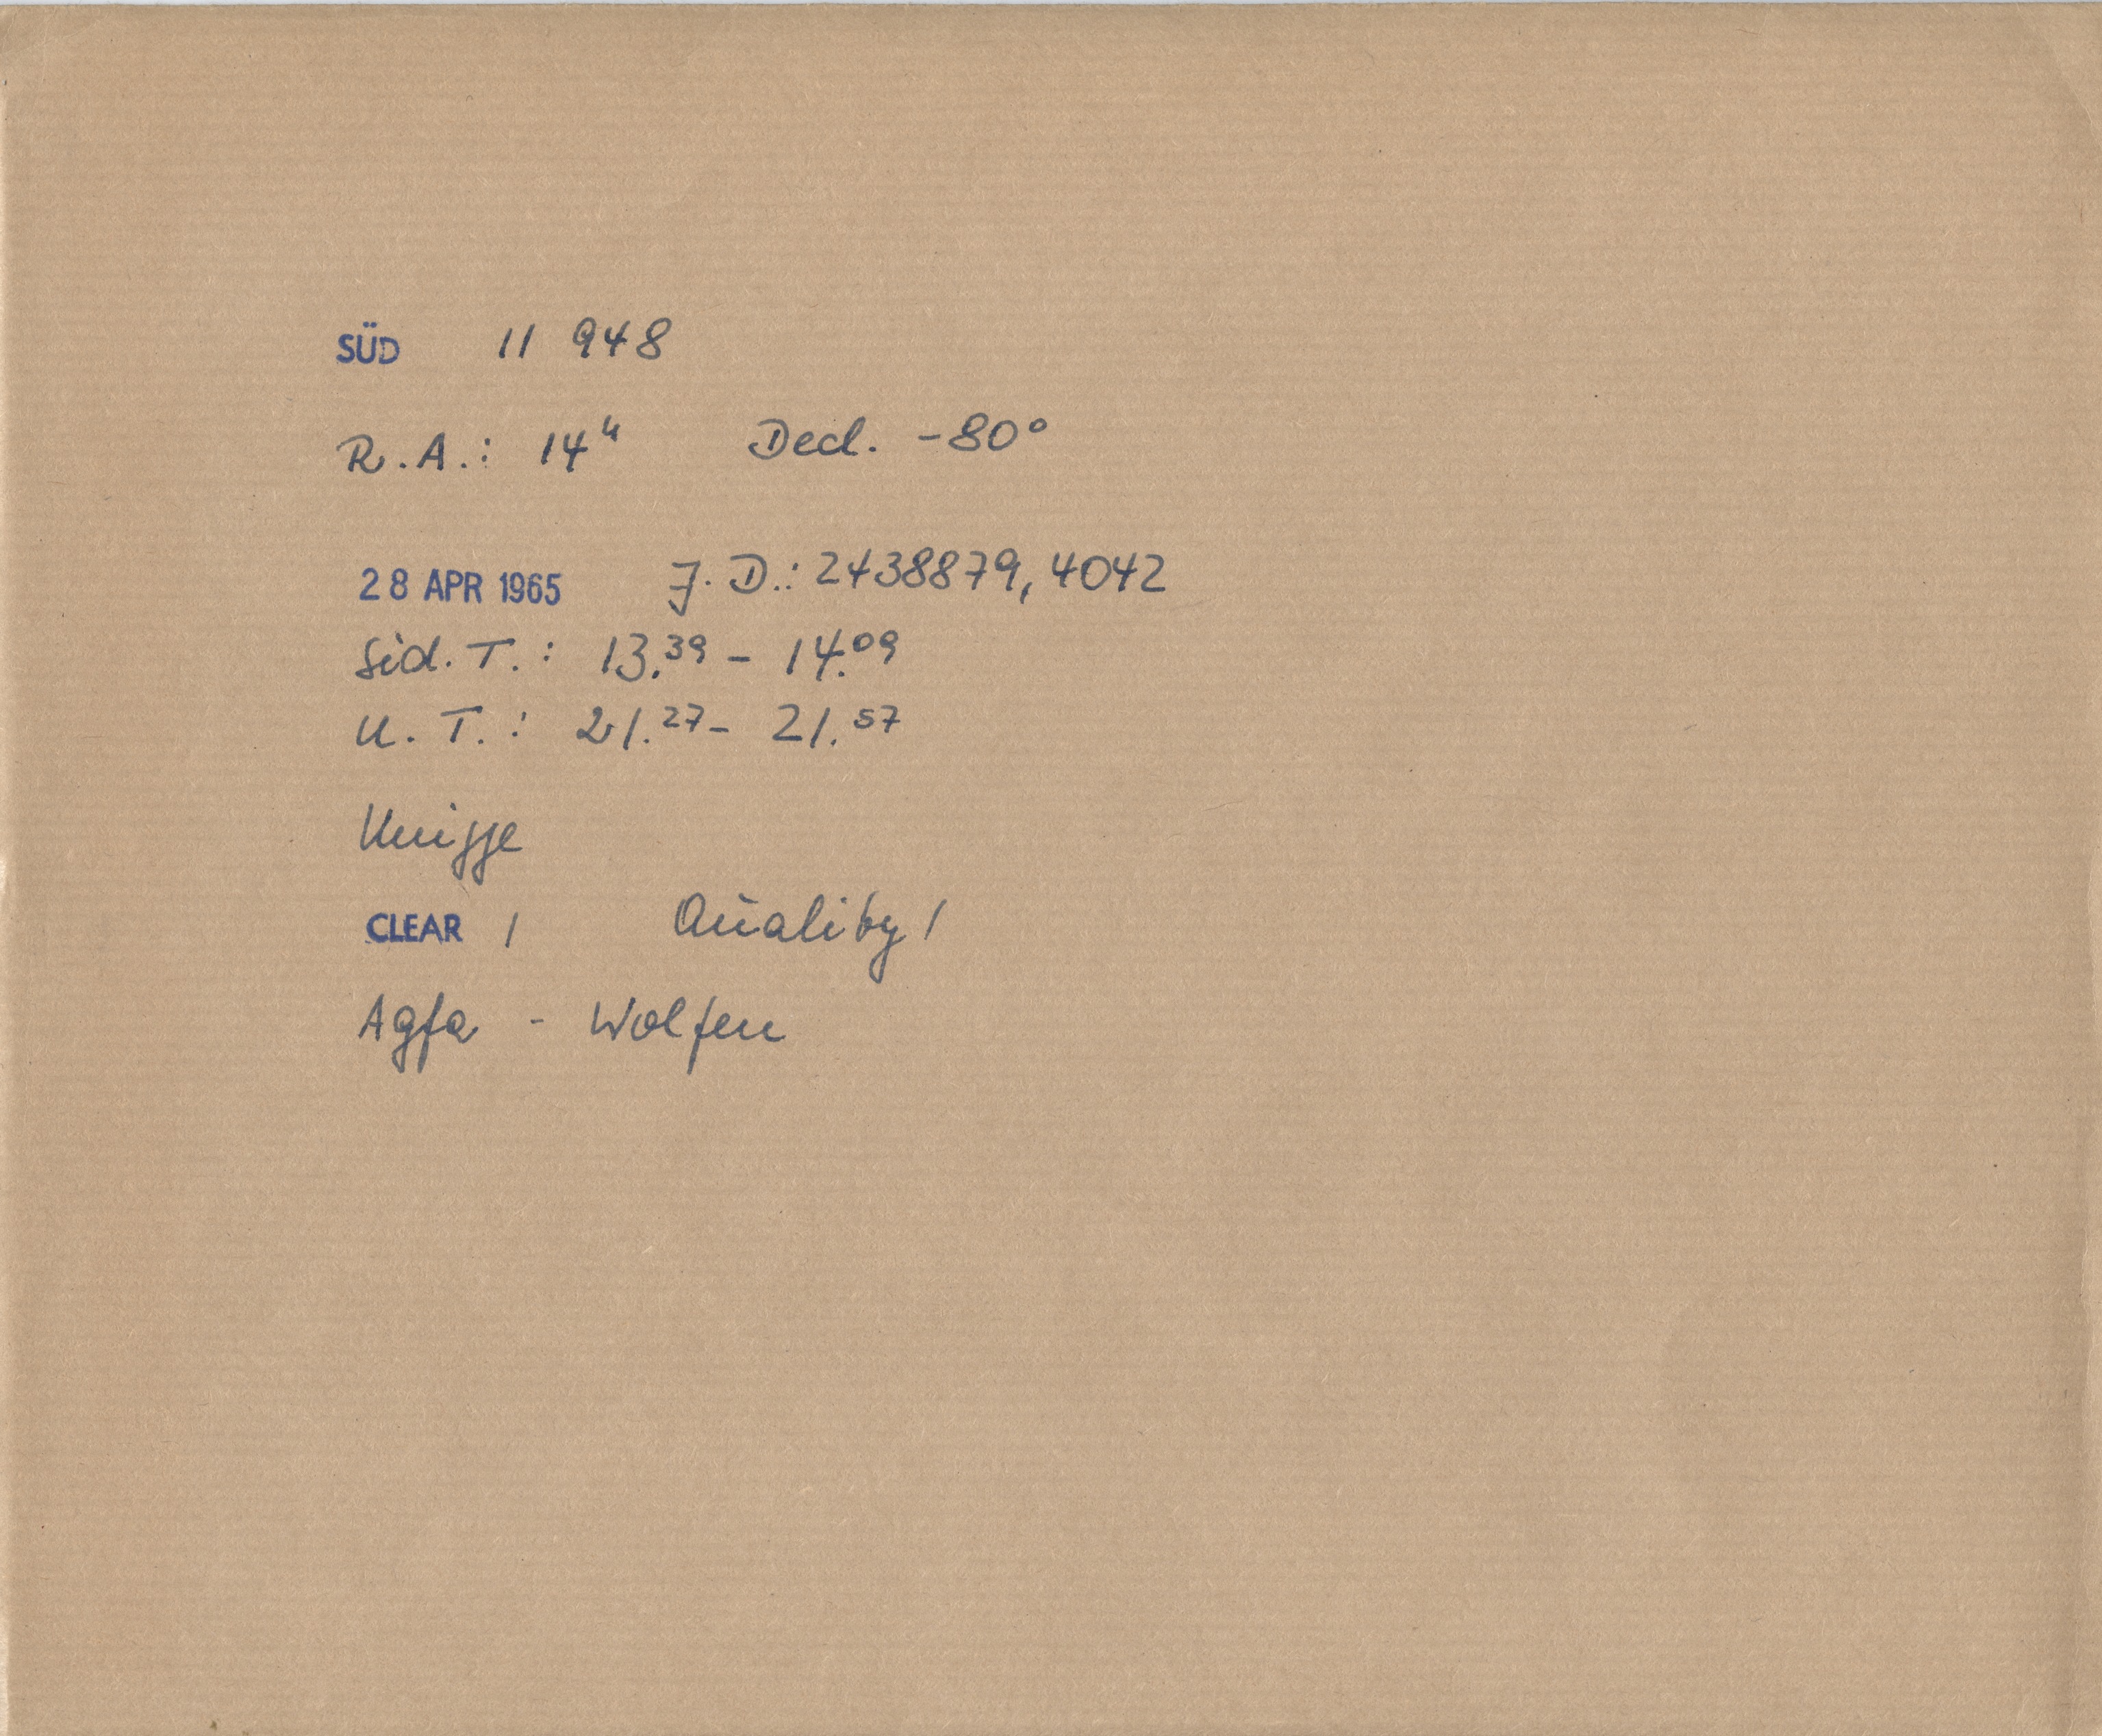 SÜD 11 948
R.A.: 14ʰ Decl. -80°
28 APR 1965 J.D.: 2438879,4042
Sid. T.: 13.³⁹ - 14.⁰⁹
U. T.: 21.²⁷ - 21.⁵⁷
Knigge
CLEAR 1 Quality 1
Agfa - Wolfen